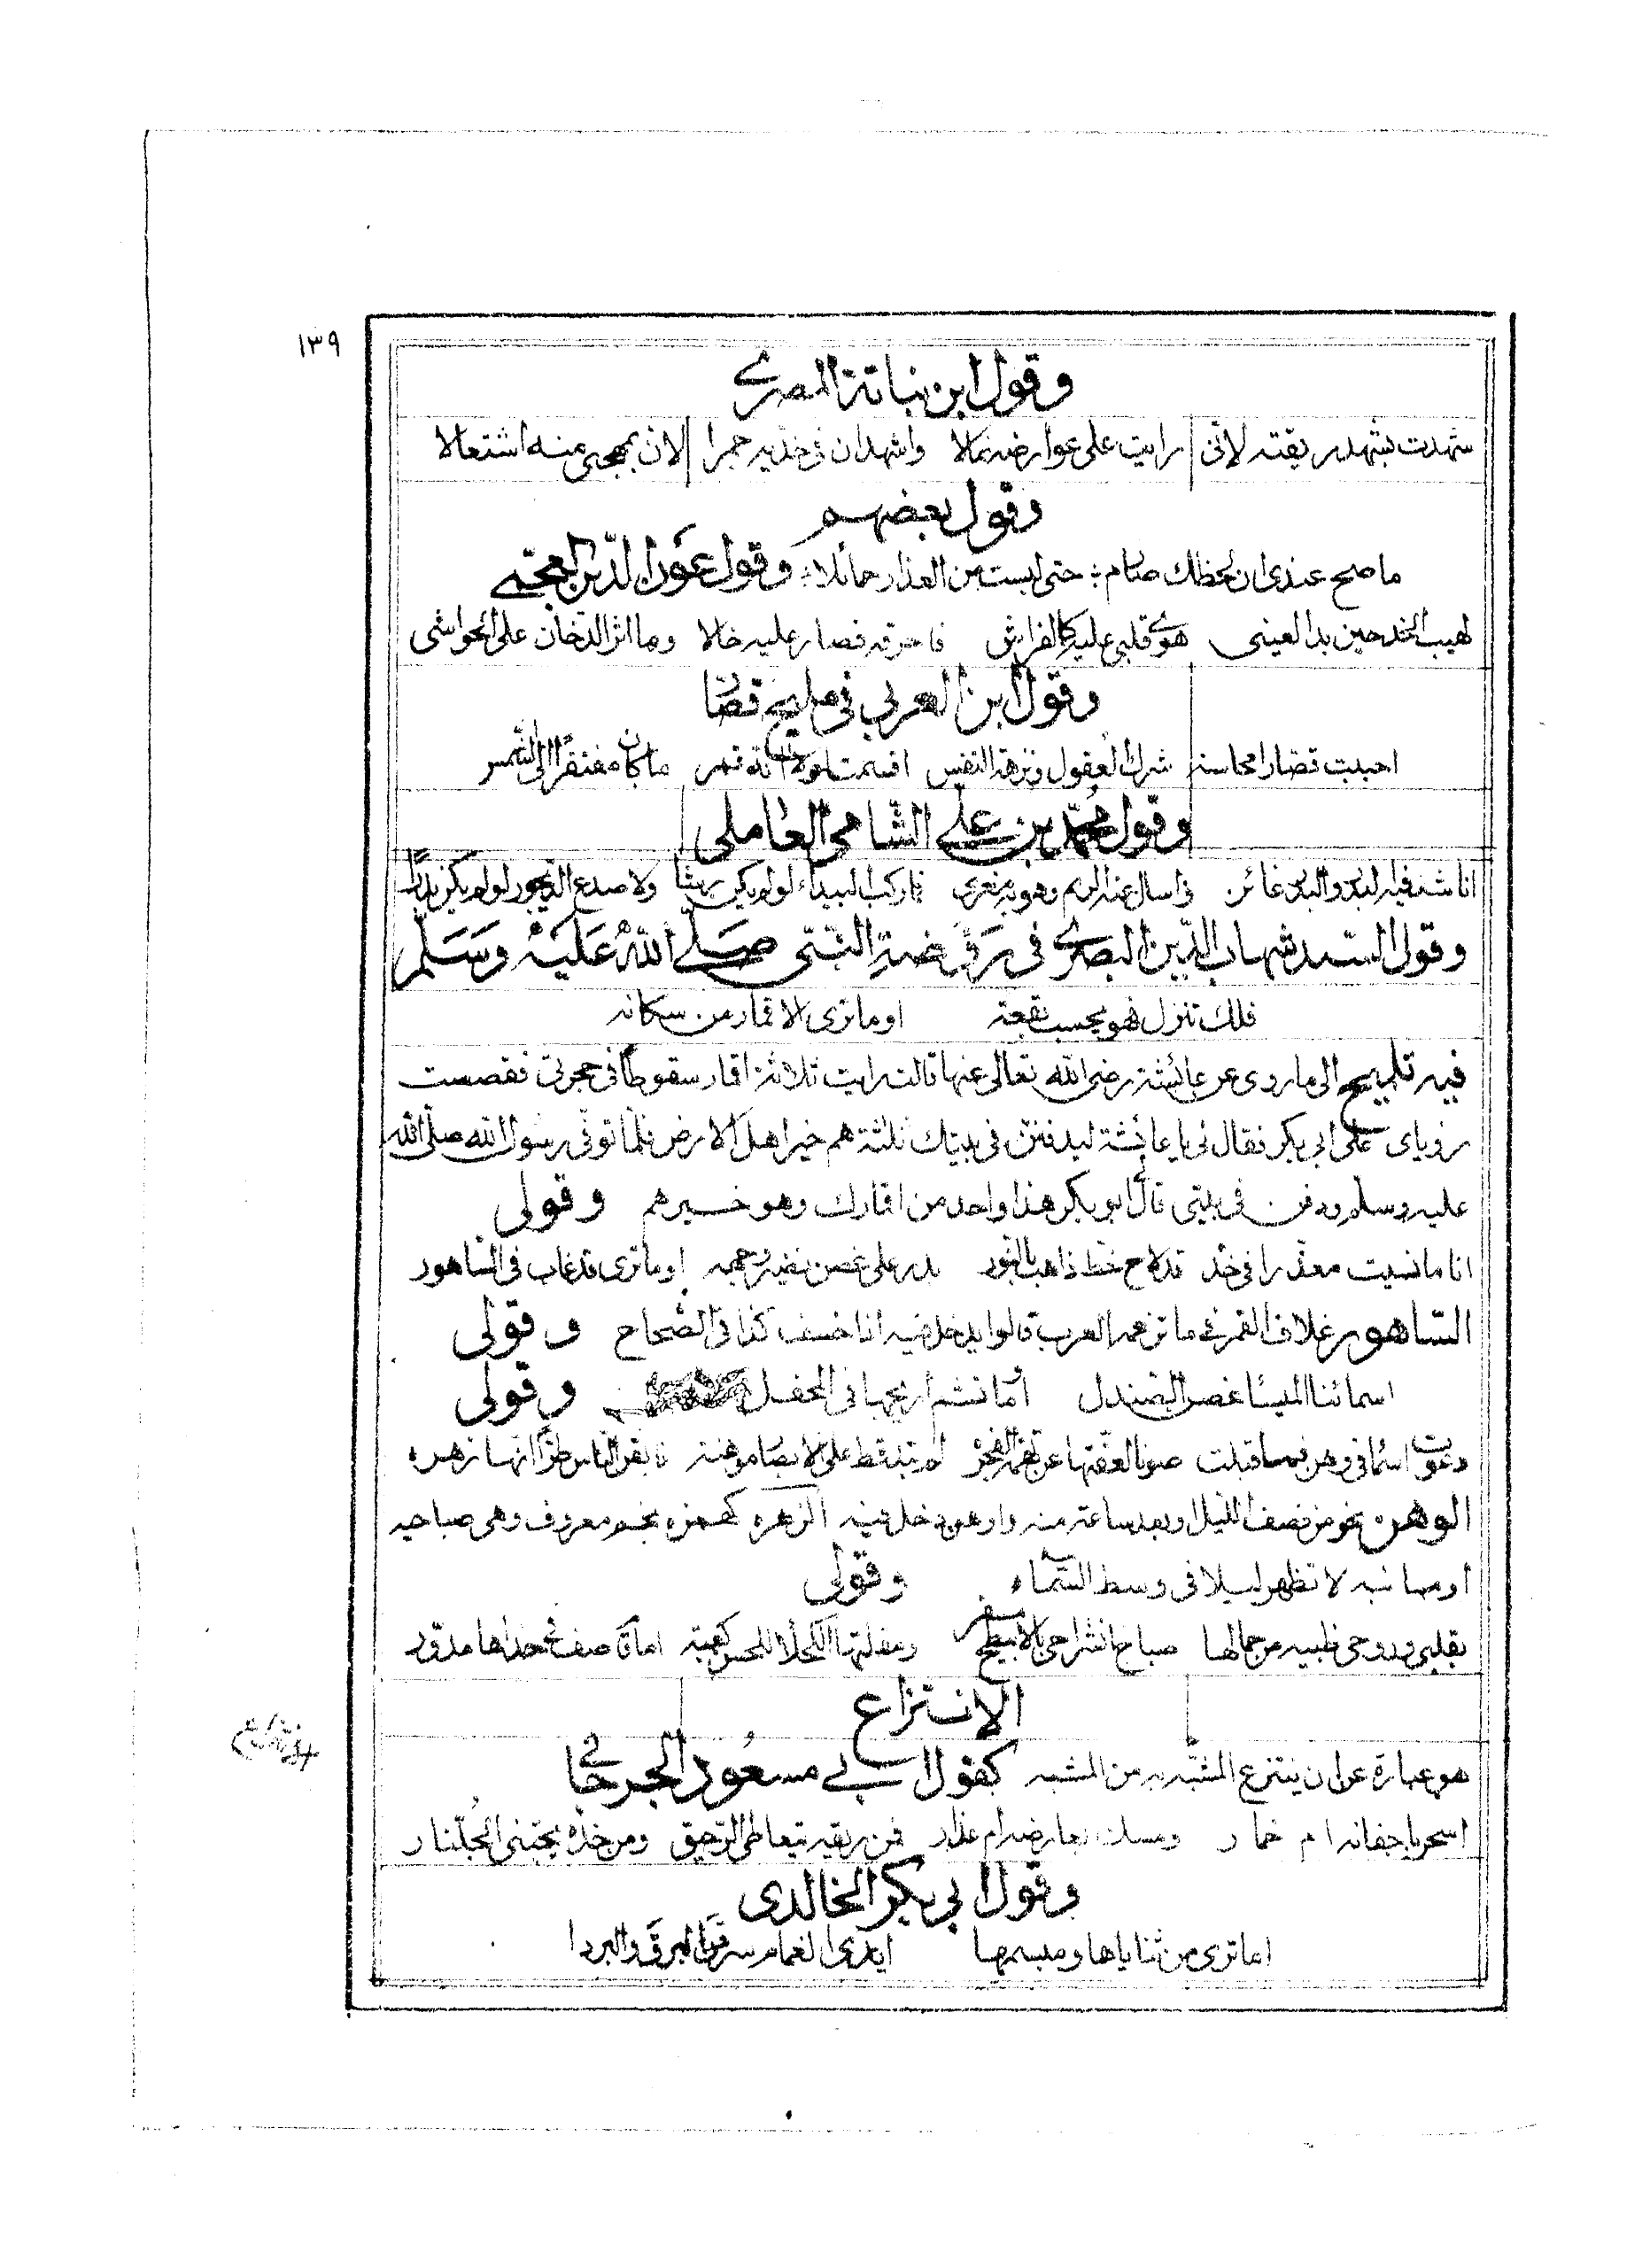 ١٣٩
وقول ابن نباتة المصرے
شهدت بشهد ريقته لانى رايت على عوارضه نمالا واشهد ان فى خديه جمرا لان بمهجتى منه اشتعالا
وقول بعضهم
ما صح عندى ان لحظك صارم حتى لبست من العذار حمائلا وقول عون الدين العجمى
لهيب الخد حين بدا لعينى هوے قلبى عليه كالفراش فاحرقه فصار عليه خالا وها اثر الدخان على الحواشى
وقول ابن العربى فى مليح قصار
احببت قصارا محاسنه شرك العقول ونزهة النفس اقسمت لولا انه قمر ما كان مفتقرا الى الشمس
وقول محمد بن على الشامى العاملى
انا شد فيه البدر والبدر غائر واسال عنه الريم وهو به مغرى فاركب البيداء لو لم يكن رشا ولا صدع الديجور لو لم يكن بدرا
وقول السيد شهاب الدين البصرے فى روضة النبى صلى الله عليه وسلم
فلك تنزل فهو يحسب بقعة اوما ترى الاقمار من سكانه
فيه تلميح الى ما روى عن عائشة رضى الله تعالى عنها قالت رايت ثلاثة اقمار سقوطا فى حجرتى فقصصت
رؤياى على ابى بكر فقال لى يا عائشة ليدفنن فى بيتك ثلثة هم خير اهل الارض فلما توفى رسول الله صلى الله
عليه وسلم ودفن فى بيتى قال ابو بكر هذا واحد من اقمارك وهو خيرهم وقولى
انا ما نسيت معذرا فى خد قد لاح خط ذاهب بالنور بدر على غصن نضير اوما ترى قد غاب فى الساهور
الساهور غلاف القمر فى ما تزعمه العرب قالوا يدخل فيه اذا خسف كذا فى الصحاح وقولى
اسمائنا الميسا غصن الصندل اما تشم اريجها فى المحفل وقولى
دعوت اسما فى وهن فما قبلت صونا لعفتها عن تهمة الفجره لم تبد قط على الابصار موهنة فايقن الناس طرا انها زهره
الوهن نحو من نصف الليل او بعد ساعة منه واوهن دخل فيه الزهره كهمزه نجم معروف وهى صباحيه
او مسائيه لا تظهر ليلا فى وسط السماء وقولى
بقلبى وروحى ظبيه من جمالها صباح انشراحى بالابيطح مسفر ومقلتها الكحلا للحسن كعبة اما صفح خداها مدور
الانتزاع
هو عبارة عن ان ينتزع المشبه به من المشبه كقول ابى مسعود الجرجانى
اسحر باجفانه ام خمار ومسك بعارضه ام عذار فمن ريقه يتعاطى الرحيق ومن خده يجتنى الجلنار
وقول ابى بكر الخالدى
اما ترى من ثناياها ومبسمها ايدى الغمام سرقن البرق والبردا